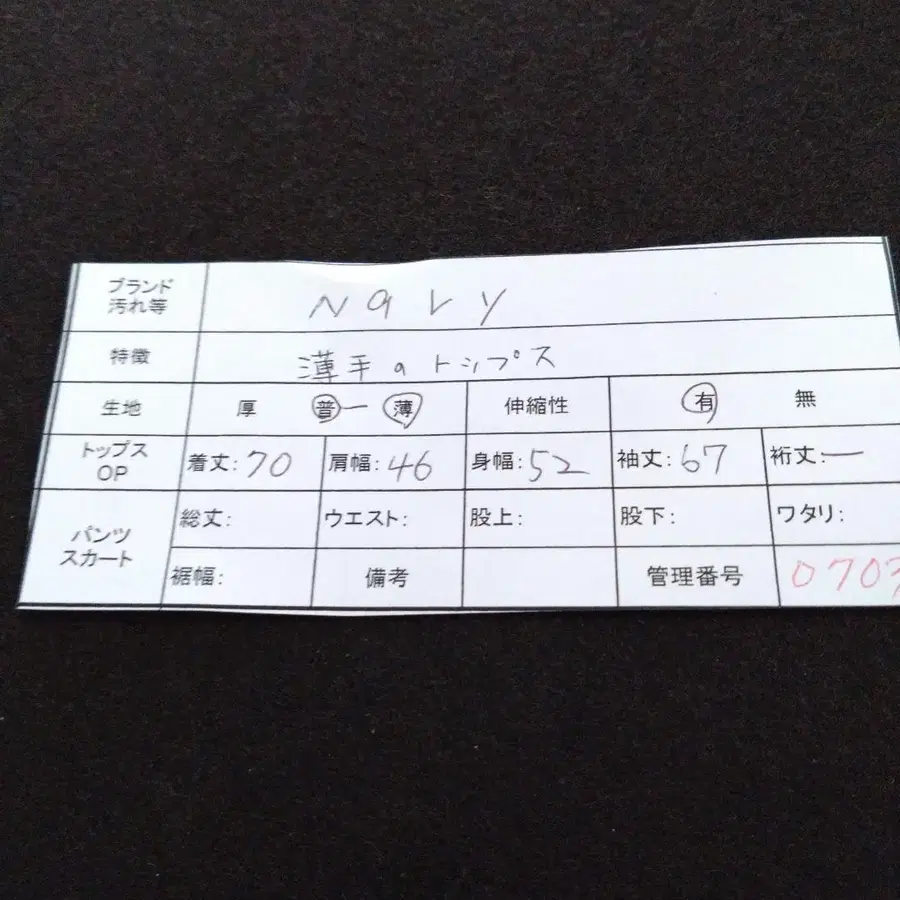 ブランド
汚れ等
Navy
特徴
薄手のトップス
生地 厚 普ー薄 伸縮性 有 無
トップス
OP
着丈:70 肩幅:46 身幅:52 袖丈:67 裄丈:ー
パンツ
スカート
総丈: ウエスト: 股上: 股下: ワタリ:
裾幅: 備考 管理番号 0703